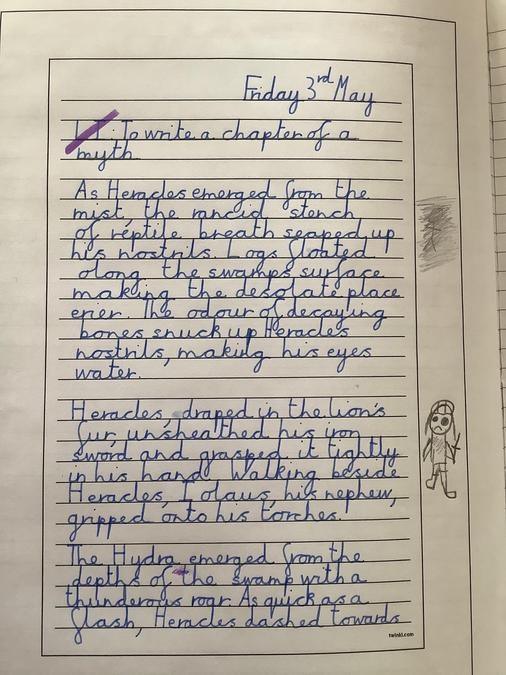 Friday 3rd May
L.I: To write a chapter of a
myth
As Heracles emerged from the
mist, the rancid stench
of reptile breath seaped up
his nostrils. Logs floated
along the swamps surface
making the desolate place
erier. The odour of decaying
bones snuck up Heracles
nostrils, making his eyes
water.
Heracles, draped in the lion's
fur, unsheathed his iron
sword and grasped it tightly
in his hand. Walking beside
Heracles, Iolaus, his nephew,
gripped onto his torches.
The Hydra emerged from the
depths of the swamp with a
thunderous roar. As quick as a
flash, Heracles dashed towards
twinkl.com